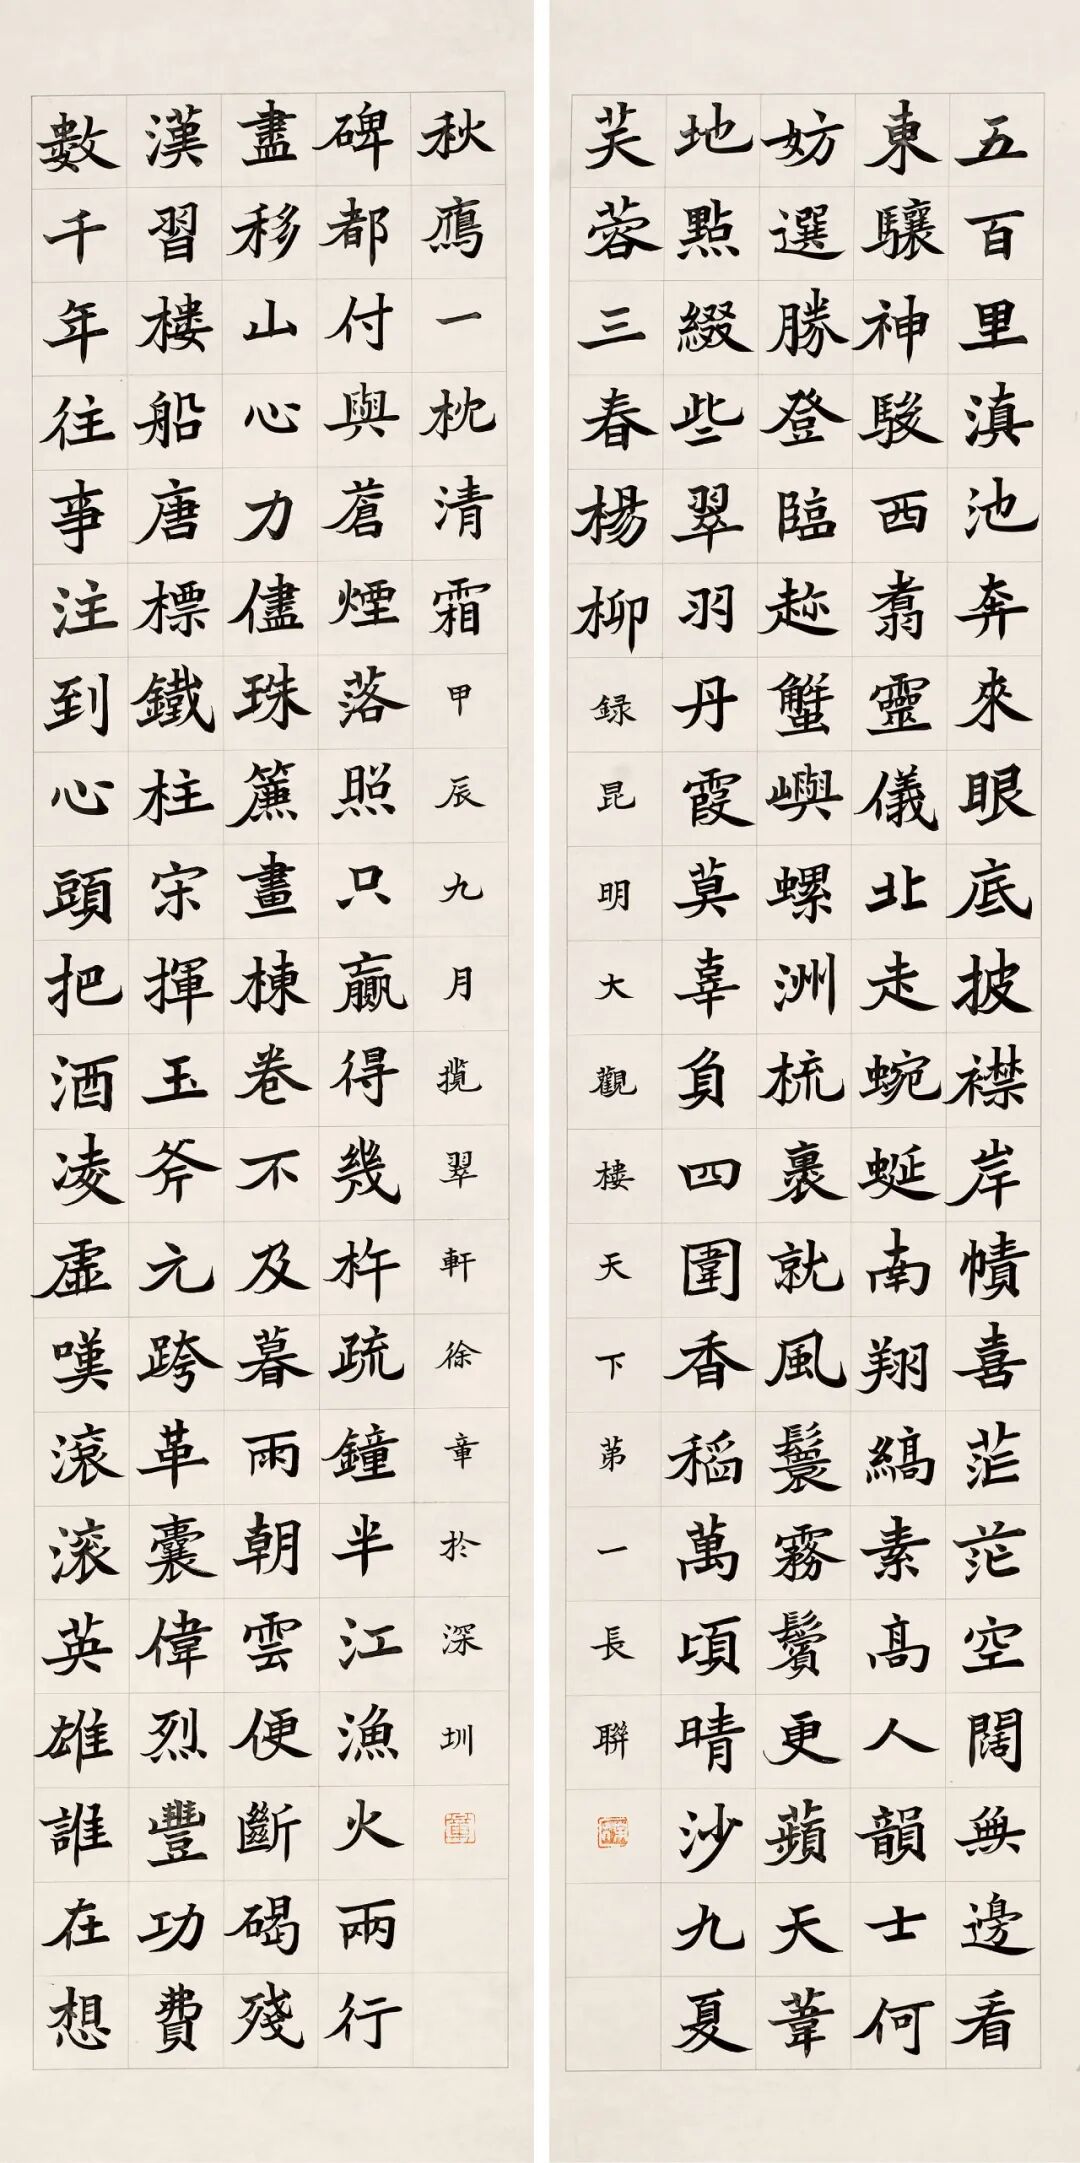 五百里滇池奔來眼底披襟岸幘喜茫茫空闊無邊看
東驤神駿西翥靈儀北走蜿蜒南翔縞素高人韻士何
妨選勝登臨趂蟹嶼螺洲梳裹就風鬟霧鬢更蘋天葦
地點綴些翠羽丹霞莫辜負四圍香稻萬頃晴沙九夏
芙蓉三春楊柳録昆明大觀樓天下苐一長聯
數千年往事注到心頭把酒凌虛嘆滾滾英雄誰在想
漢習樓船唐標鐵柱宋揮玉斧元跨革囊偉烈豐功費
盡移山心力儘珠簾畫棟卷不及暮雨朝雲便斷碣殘
碑都付與蒼煙落照只贏得幾杵疏鐘半江漁火兩行
秋鴈一枕清霜甲辰九月攬翠軒徐章於深圳